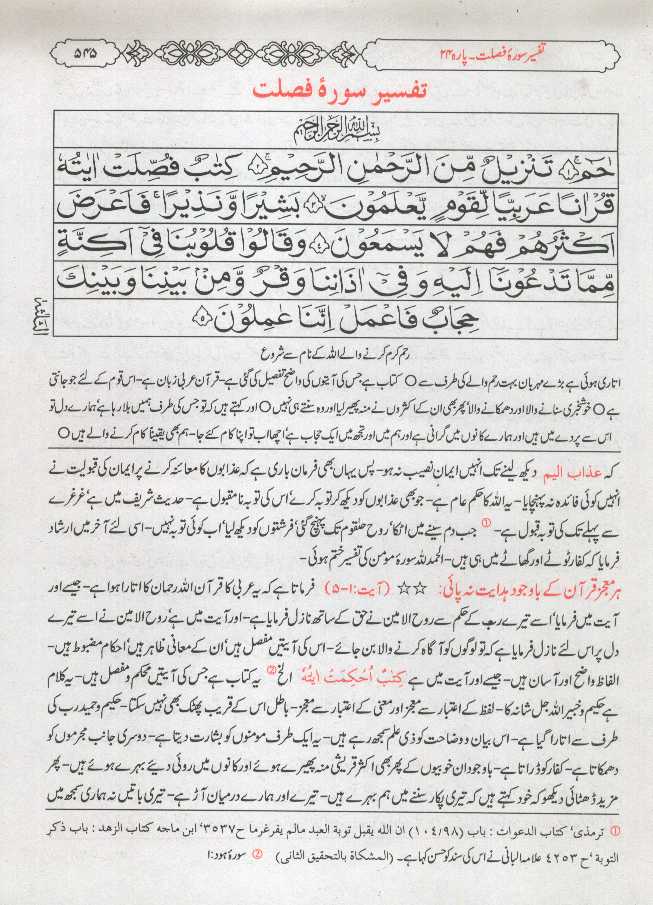 تفسیر سورۂ فصلت۔ پارہ ۲۴
۵۴۵
تفسیر سورۂ فصلت
بِسْمِ اللّٰهِ الرَّحْمٰنِ الرَّحِيْمِ
حٰمٓ ۚ﴿۱﴾ تَنْزِيْلٌ مِّنَ الرَّحْمٰنِ الرَّحِيْمِ ۚ﴿۲﴾ كِتٰبٌ فُصِّلَتْ اٰيٰتُهٗ
قُرْاٰنًا عَرَبِيًّا لِّقَوْمٍ يَّعْلَمُوْنَ ﴿۳﴾ بَشِيْرًا وَّنَذِيْرًا ۚ فَاَعْرَضَ
اَكْثَرُهُمْ فَهُمْ لَا يَسْمَعُوْنَ ﴿۴﴾ وَقَالُوْا قُلُوْبُنَا فِيْٓ اَكِنَّةٍ
مِّمَّا تَدْعُوْنَآ اِلَيْهِ وَفِيْٓ اٰذَانِنَا وَقْرٌ وَّمِنْۢ بَيْنِنَا وَبَيْنِكَ
حِجَابٌ فَاعْمَلْ اِنَّنَا عٰمِلُوْنَ ﴿۵﴾
رحم کرم کرنے والے اللہ کے نام سے شروع
اتاری ہوئی ہے بڑے مہربان بہت رحم والے کی طرف سے ○ کتاب ہے جس کی آیتوں کی واضح تفصیل کی گئی ہے- قرآن عربی زبان ہے- اس قوم کے لئے جو جانتی
ہے ○ خوشخبری سنانے والا اور دھمکانے والا' پھر بھی ان کے اکثروں نے منہ پھیر لیا اور وہ سنتے ہی نہیں ○ اور کہتے ہیں کہ تو جس کی طرف ہمیں بلا رہا ہے' ہمارے دل تو
اس سے پردے میں ہیں اور ہمارے کانوں میں گرانی ہے اور ہم میں اور تجھ میں ایک حجاب ہے' اچھا اب تو اپنا کام کئے جا- ہم بھی یقینا کام کرنے والے ہیں ○
کہ عذاب الیم دیکھ لینے تک انہیں ایمان نصیب نہ ہو- پس یہاں بھی فرمان باری ہے کہ عذابوں کا معائنہ کرنے پر ایمان کی قبولیت نے
انہیں کوئی فائدہ نہ پہنچایا- یہ اللہ کا حکم عام ہے- جو بھی عذابوں کو دیکھ کر توبہ کرے' اس کی توبہ نامقبول ہے- حدیث شریف میں ہے' غرغرے
سے پہلے تک کی توبہ قبول ہے- ① جب دم سینے میں اٹکا' روح حلقوم تک پہنچ گئی' فرشتوں کو دیکھ لیا' اب کوئی توبہ نہیں- اسی لئے آخر میں ارشاد
فرمایا کہ کفار ٹوٹے اور گھاٹے میں ہی ہیں- الحمد للہ سورۂ مومن کی تفسیر ختم ہوئی-
ہر معجز قرآن کے باوجود ہدایت نہ پائی: ☆☆ (آیت:۱-۵) فرماتا ہے کہ یہ عربی کا قرآن اللہ رحمان کا اتارا ہوا ہے- جیسے اور
آیت میں فرمایا' اسے تیرے رب کے حکم سے روح الامین نے حق کے ساتھ نازل فرمایا ہے- اور آیت میں ہے' روح الامین نے اسے تیرے
دل پر اس لئے نازل فرمایا ہے کہ تو لوگوں کو آگاہ کرنے والا بن جائے- اس کی آیتیں مفصل ہیں' ان کے معانی ظاہر ہیں' احکام مضبوط ہیں-
الفاظ واضح اور آسان ہیں- جیسے اور آیت میں ہے كِتٰبٌ اُحْكِمَتْ اٰيٰتُهٗ الخ ② یہ کتاب ہے جس کی آیتیں محکم و مفصل ہیں- یہ کلام
ہے حکیم و خبیر اللہ جل شانہ کا- لفظ کے اعتبار سے معجز اور معنی کے اعتبار سے معجز- باطل اس کے قریب پھٹک بھی نہیں سکتا- حکیم و حمید رب کی
طرف سے اتارا گیا ہے- اس بیان و وضاحت کو ذی علم سمجھ رہے ہیں- یہ ایک طرف مومنوں کو بشارت دیتا ہے- دوسری جانب مجرموں کو
دھمکاتا ہے- کفار کو ڈراتا ہے- باوجود ان خوبیوں کے پھر بھی اکثر قریشی منہ پھیرے ہوئے اور کانوں میں روئی دیئے بہرے ہوئے ہیں- پھر
مزید ڈھٹائی دیکھو کہ خود کہتے ہیں کہ تیری پکار سننے میں ہم بہرے ہیں- تیرے اور ہمارے درمیان آڑ ہے- تیری باتیں نہ ہماری سمجھ میں
① ترمذی' کتاب الدعوات : باب (۱۰۴/۹۸) ان الله يقبل توبة العبد مالم يغرغر ما ح۳۵۳۷' ابن ماجه كتاب الزهد : باب ذكر
التوبة' ح ۴۲۵۳ علامہ البانی نے اس کی سند کو حسن کہا ہے۔ (المشکاة بالتحقیق الثانی) ② سورۂ ہود:۱